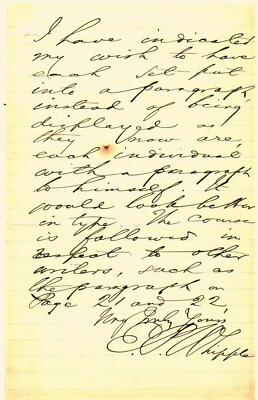 I have indicated
my wish to have
each set put
into a paragraph,
instead of being
displayed as
they now are,
each individual
with a paragraph
to himself. It
would look better
in type. The course
is followed in
respect to other
writers, such as
the paragraph on
Page 21 and 22
Very truly Yours
E. P. Whipple